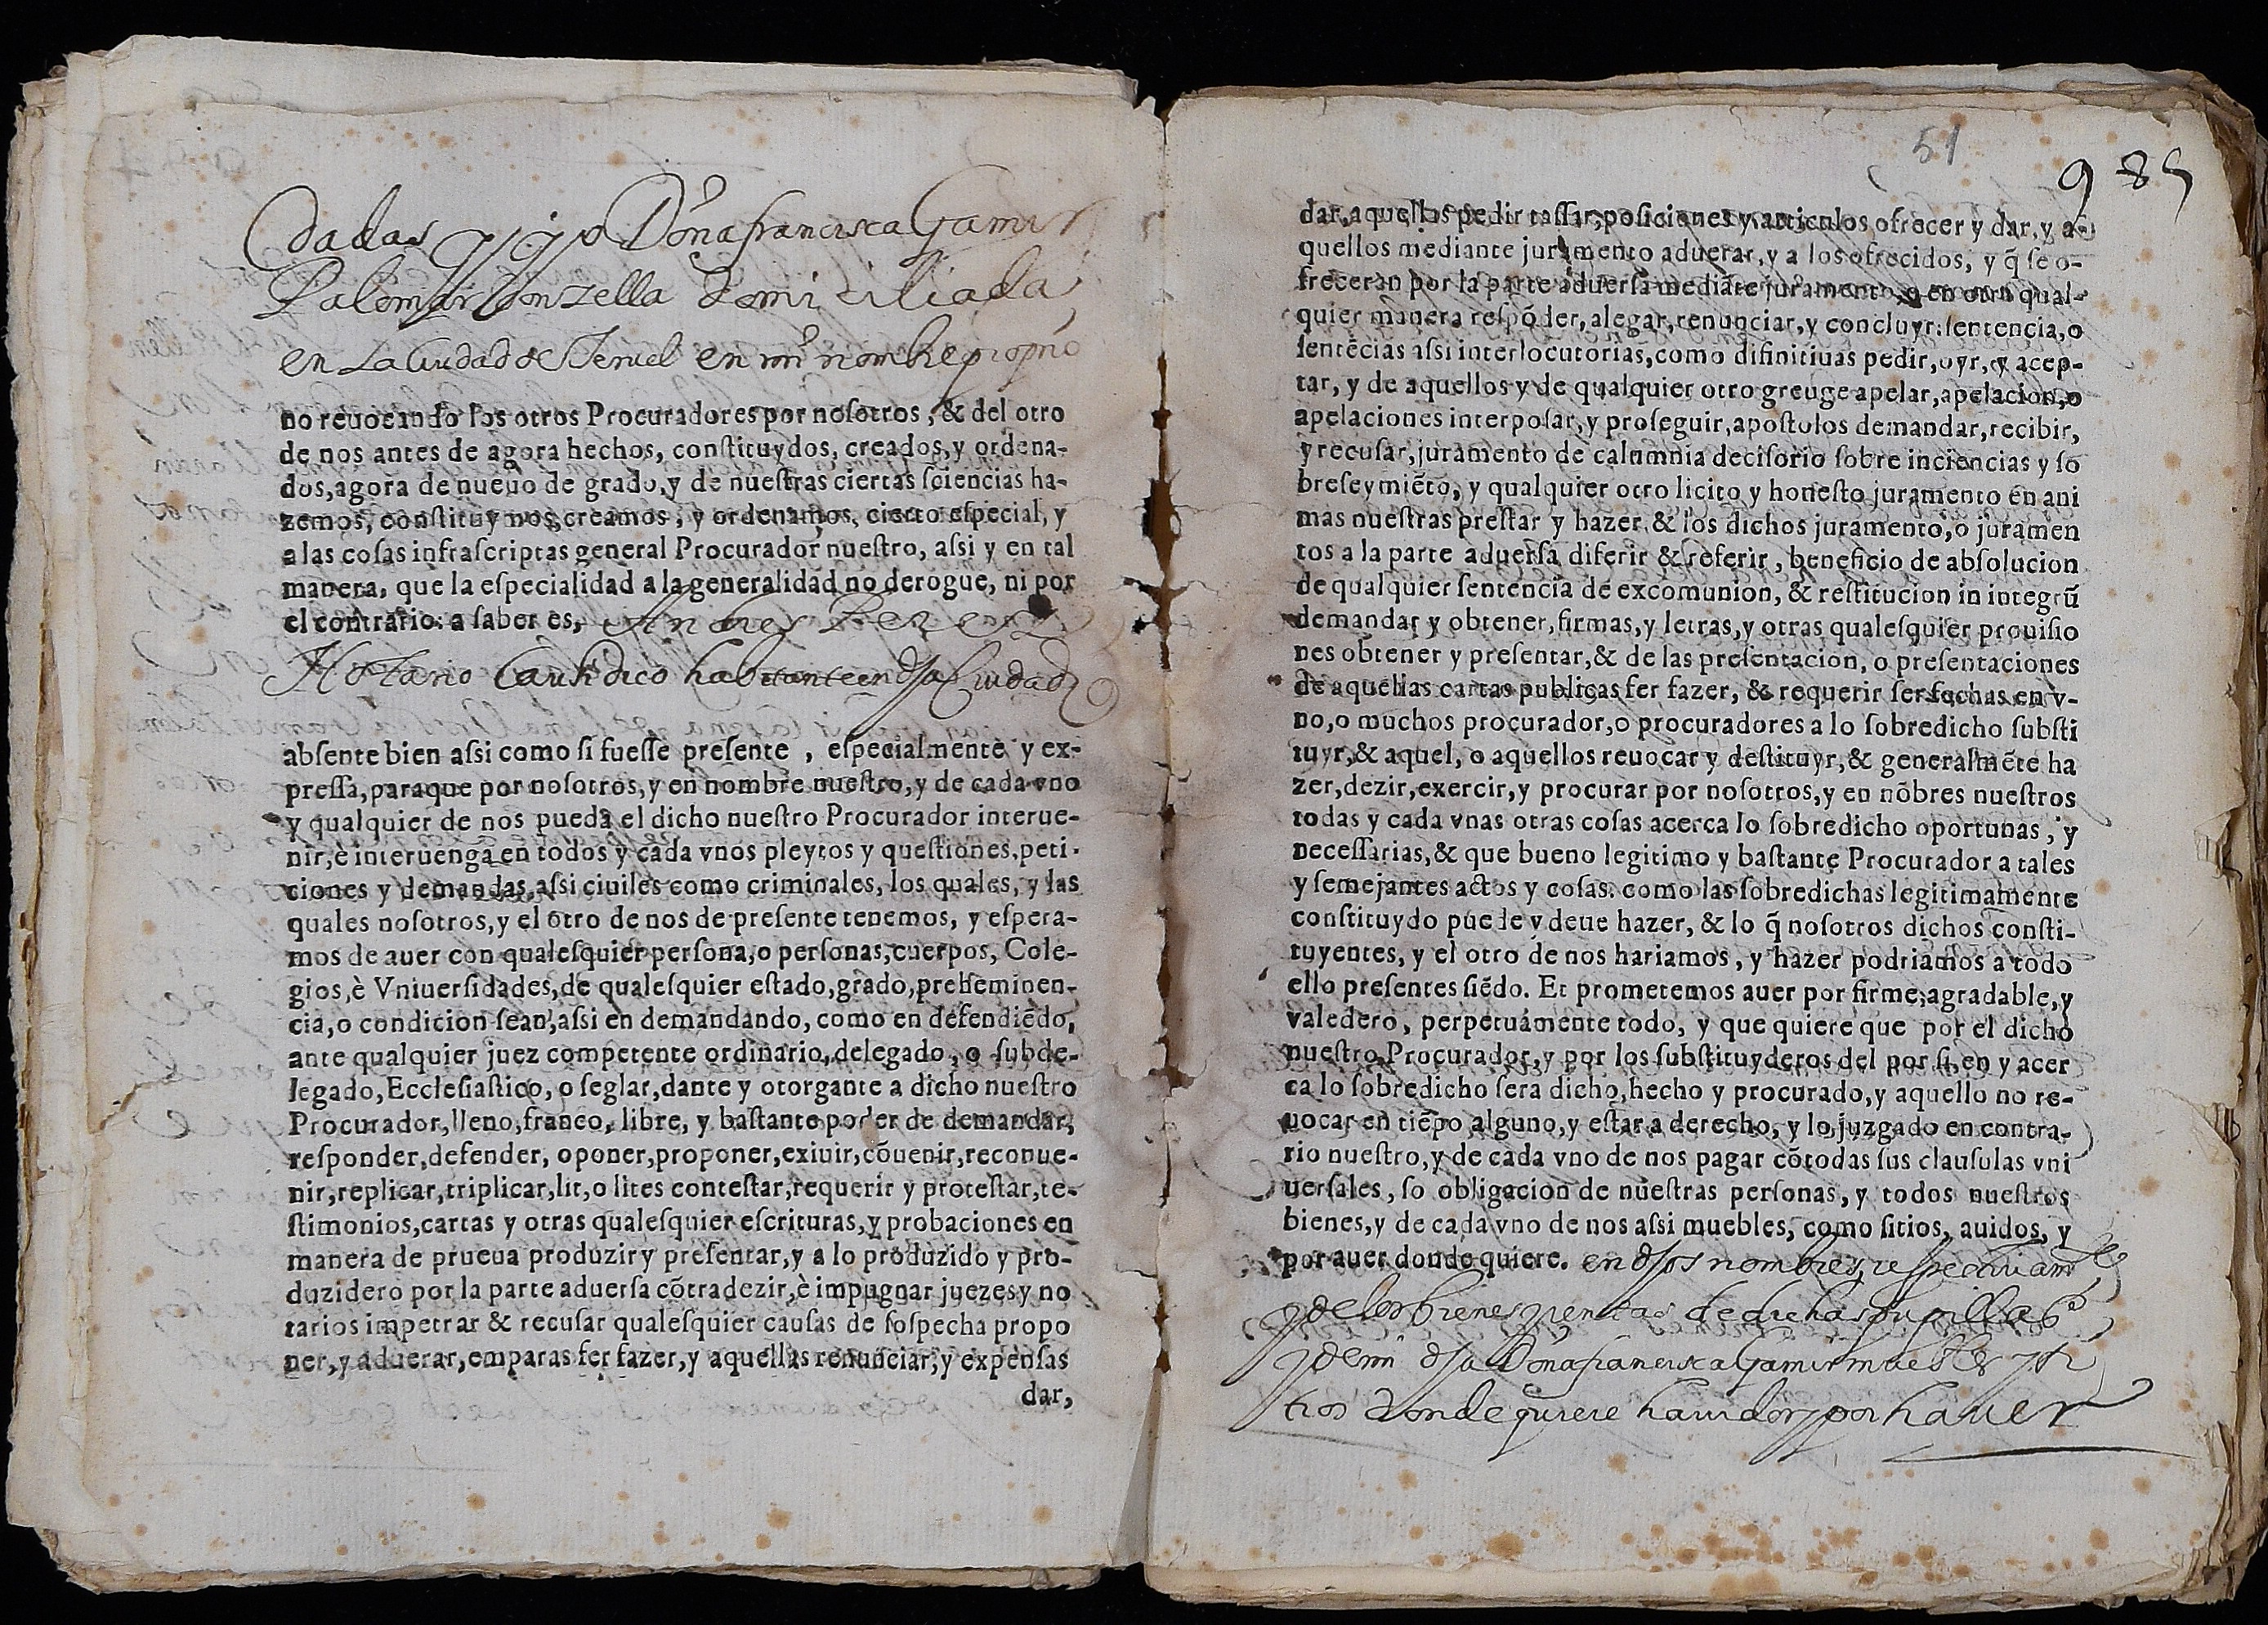 dadas y yo Doña francisca Gamir
Palomar Donzella domiciliada
en La Ciudad de Teruel en mi nombre propio
no reuocando los otros Procuradores por nosotros, & del otro
de nos antes de agora hechos, constituydos, creados, y ordena-
dos, agora de nueuo de grado, y de nuestras ciertas sciencias ha-
zemos, constituymos, creamos, y ordenamos, cierto especial, y
a las cosas infrascriptas general Procurador nuestro, assi y en tal
manera, que la especialidad a la generalidad no derogue, ni por
el contrario: a saber es, Andres Perez
Notario Causidico habitante en dha Ciudad
absente bien assi como si fuesse presente, especialmente y ex-
pressa, paraque por nosotros, y en nombre nuestro, y de cada vno
y qualquier de nos pueda el dicho nuestro Procurador interue-
nir, è interuenga en todos y cada vnos pleytos y questiones, peti-
ciones y demandas, assi ciuiles como criminales, los quales, y las
quales nosotros, y el otro de nos de presente tenemos, y espera-
mos de auer con qualesquier persona, o personas, cuerpos, Cole-
gios, è Vniuersidades, de qualesquier estado, grado, preheminen-
cia, o condicion sean, assi en demandando, como en defendiẽdo,
ante qualquier juez competente ordinario, delegado, o subde-
legado, Ecclesiastico, o seglar, dante y otorgante a dicho nuestro
Procurador, lleno, franco, libre, y bastante poder de demandar,
responder, defender, oponer, proponer, exiuir, cõuenir, reconue-
nir, replicar, triplicar, lit, o lites contestar, requerir y protestar, te-
stimonios, cartas y otras qualesquier escrituras, y probaciones en
manera de prueua produzir y presentar, y a lo produzido y pro-
duzidero por la parte aduersa cõtradezir, è impugnar juezes y no
tarios impetrar & recusar qualesquier causas de sospecha propo
ner, y aduerar, emparas fer fazer, y aquellas renunciar, y expensas
dar,
51
985
dar, aquellas pedir tassar, posiciones y articulos ofrecer y dar, y a-
quellos mediante juramento aduerar, y a los ofrecidos, y q̃ se o-
freceran por la parte aduersa mediãte jurament o, o en otra qual-
quier manera respõder, alegar, renunciar, y concluyr: sentencia, o
sentẽcias assi interlocutorias, como difinitiuas pedir, oyr, y acep-
tar, y de aquellos y de qualquier otro greuge apelar, apelacion, o
apelaciones interposar, y proseguir, apostolos demandar, recibir,
y recusar, juramento de calumnia decisorio sobre inciencias y so
breseymiẽto, y qualquier otro licito y honesto juramento en ani
mas nuestras prestar y hazer, & los dichos juramento, o juramen
tos a la parte aduersa diferir & referir, beneficio de absolucion
de qualquier sentencia de excomunion, & restitucion in integrũ
demandar y obtener, firmas, y letras, y otras qualesquier prouisio
nes obtener y presentar, & de las presentacion, o presentaciones
de aquellas cartas publicas fer fazer, & requerir ser fechas en v-
no, o muchos procurador, o procuradores a lo sobredicho substi
tuyr, & aquel, o aquellos reuocar y destituyr, & generalmẽte ha
zer, dezir, exercir, y procurar por nosotros, y en nõbres nuestros
todas y cada vnas otras cosas acerca lo sobredicho oportunas, y
necessarias, & que bueno legitimo y bastante Procurador a tales
y semejantes actos y cosas. como las sobredichas legitimamente
constituydo puede y deue hazer, & lo q̃ nosotros dichos consti-
tuyentes, y el otro de nos hariamos, y hazer podriamos a todo
ello presentes siẽdo. Et prometemos auer por firme, agradable, y
valedero, perpetuamente todo, y que quiere que por el dicho
nuestro Procurador, y por los substituyderos del por si, en y acer
ca lo sobredicho sera dicho, hecho y procurado, y aquello no re-
uocar en tiẽpo alguno, y estar a derecho, y lo juzgado en contra-
rio nuestro, y de cada vno de nos pagar cõ todas sus clausulas vni
uersales, so obligacion de nuestras personas, y todos nuestros
bienes, y de cada vno de nos assi muebles, como sitios, auidos, y
por auer donde quiere. en dhos nombres respectiuamte
y de los bienes y rentas de dichas pupillas
y de mi dha Doña francisca Gamir muebles y si
tios donde quiere hauidos y por hauer